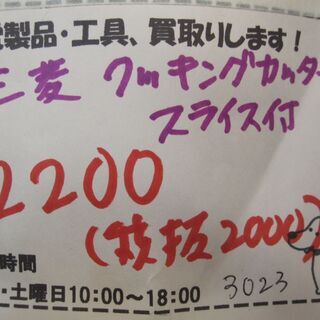 製品・工具、買取りします!
三菱 クッキングカッター
スライス付
2200
(税抜2000)
時間
・土曜日10:00〜18:00
3023